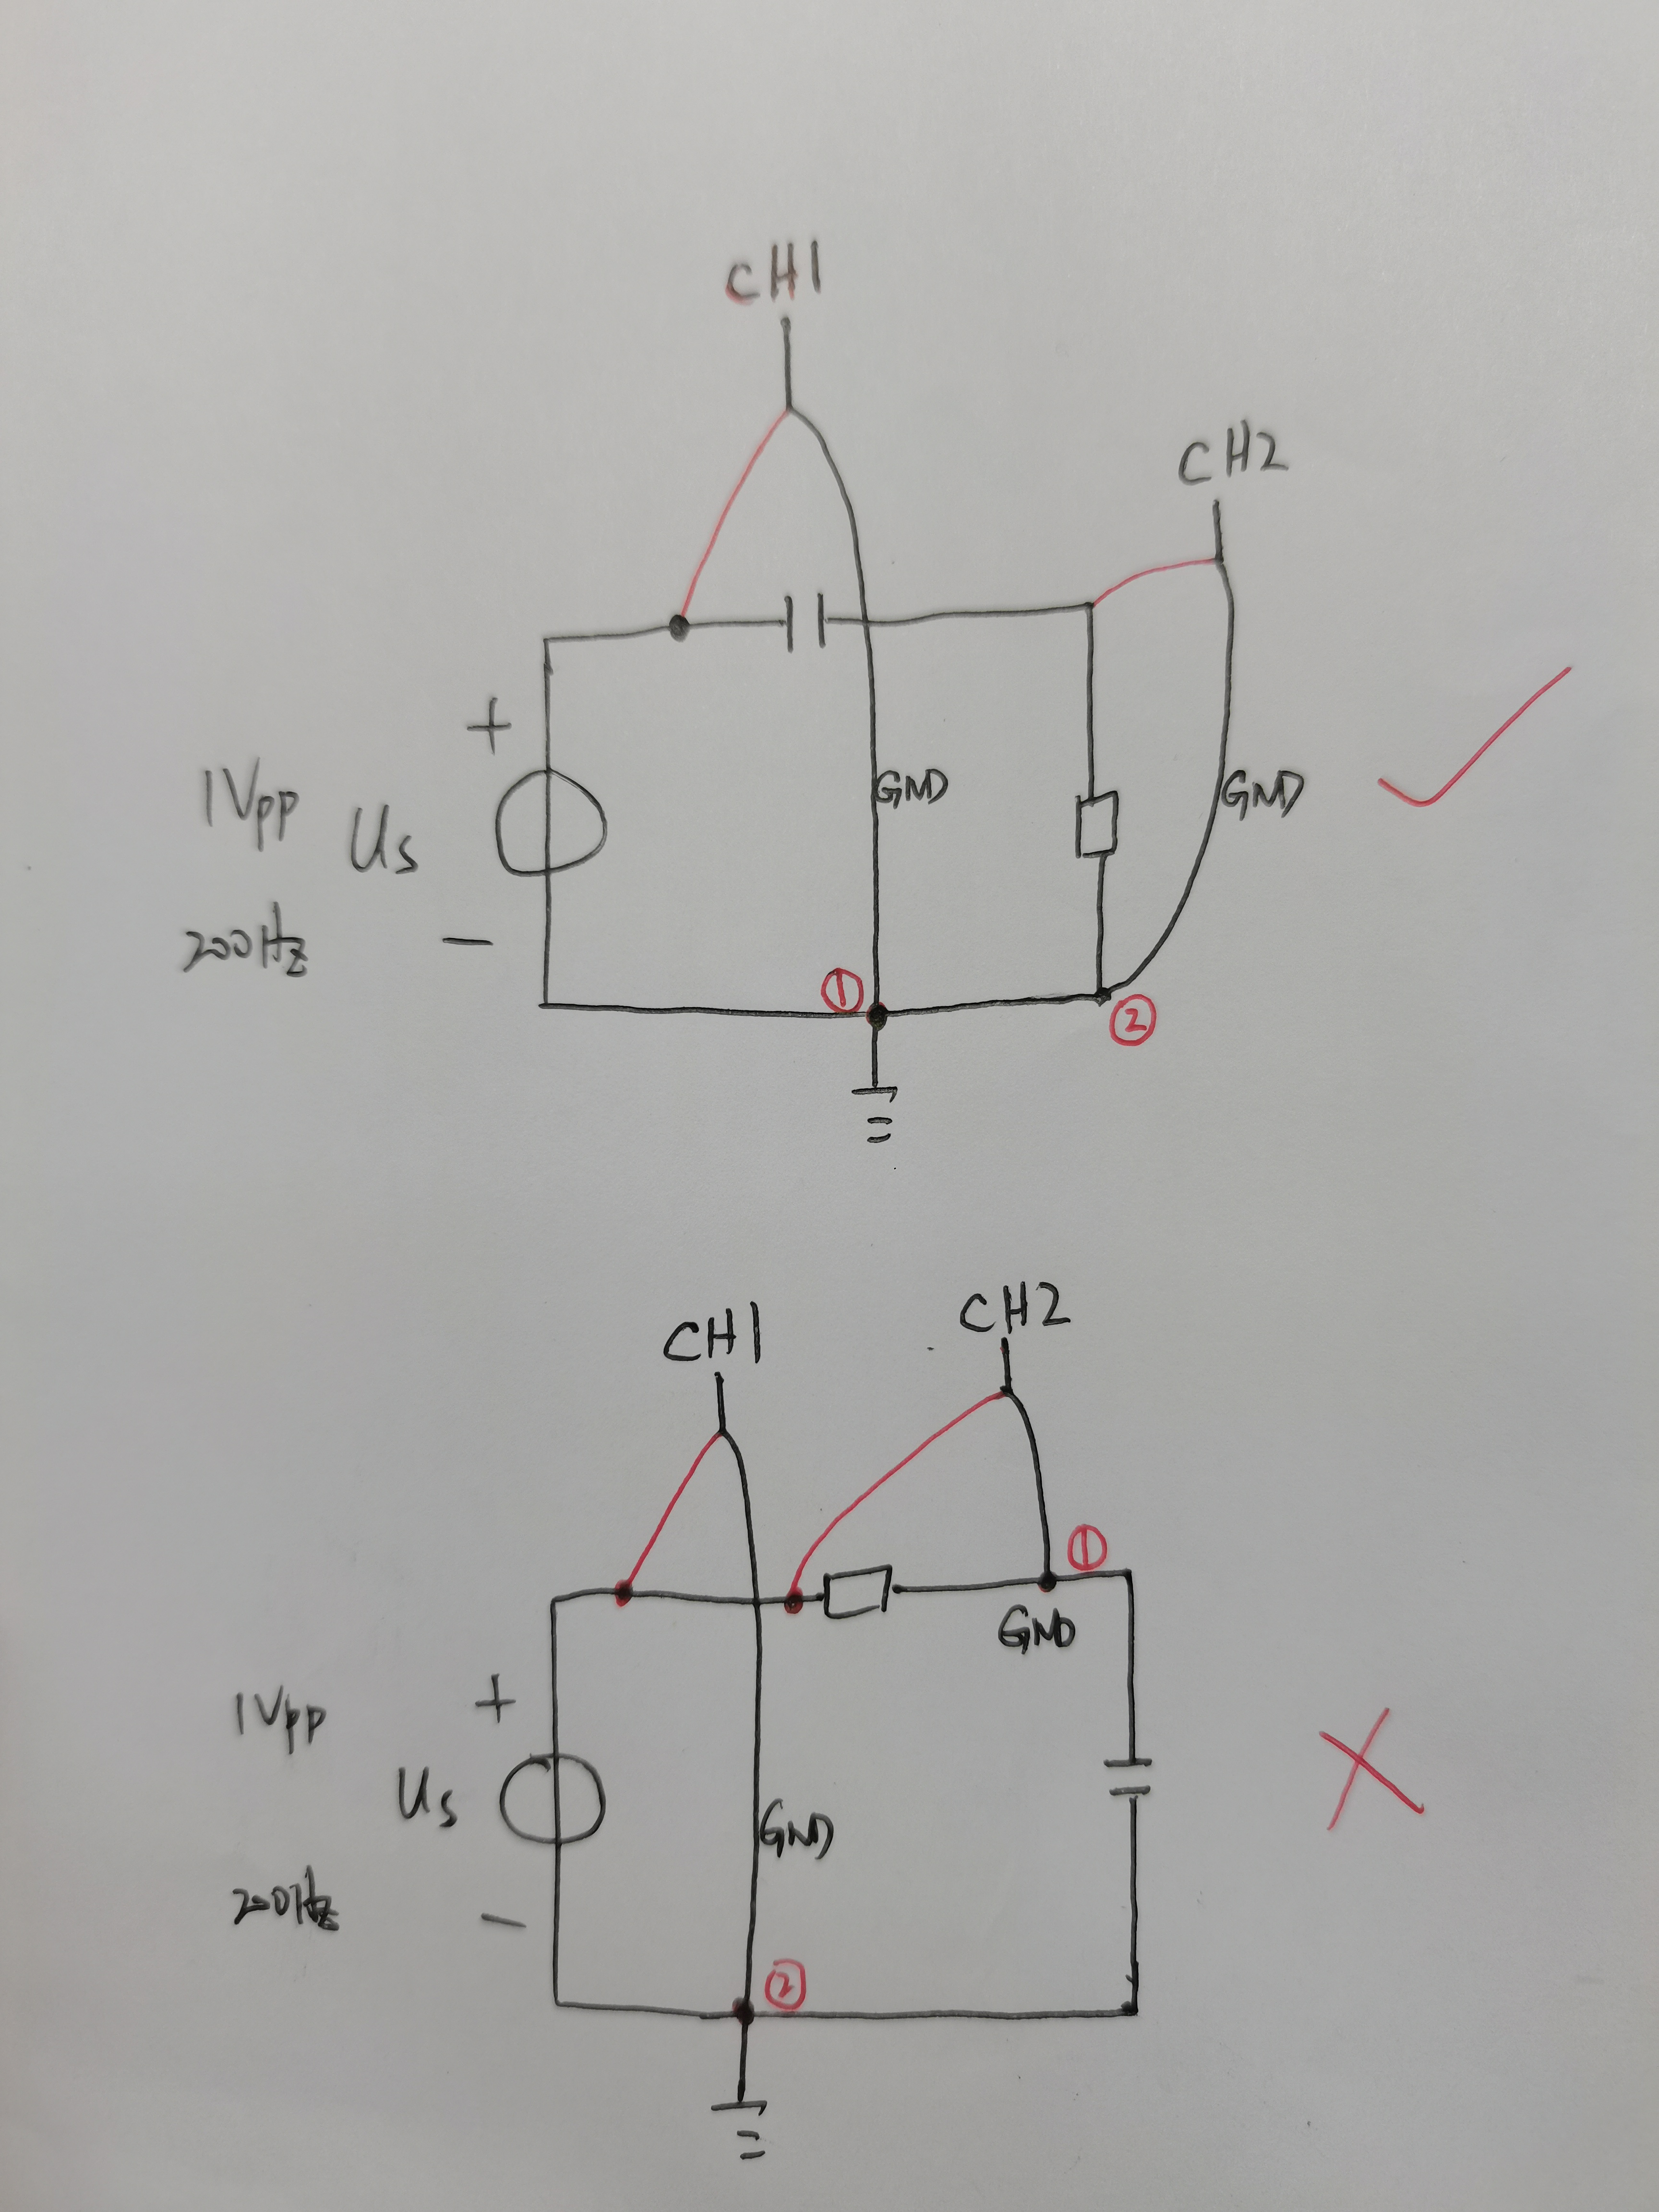 CH1
CH2
+
1Vpp
Us
GND
GND
200Hz
−
①
②
CH1
CH2
①
GND
+
1Vpp
Us
GND
200Hz
−
②